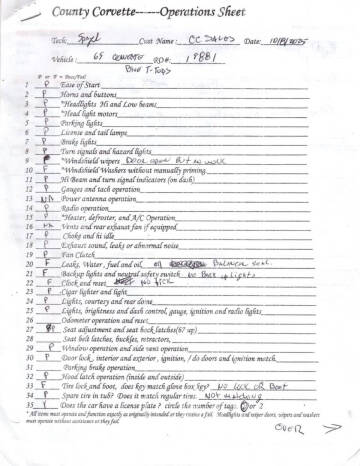 County Corvette------Operations Sheet
Tech: Cust Name: CC SALES Date: 10/8/2025
Vehicle: 65 RO# 19881
Blue T-Tops
P or F = Pass/Fail
1 P Ease of Start
2 P Horns and buttons
3 P *Headlights Hi and Low beams
4 P *Head light motors
5 P Parking lights
6 P License and tail lamps
7 P Brake lights
8 P Turn signals and hazard lights
9 P *Windshield wipers Door open But no work
10 F *Windshield Washers without manually priming
11 P Hi Beam and turn signal indicators (on dash)
12 P Gauges and tach operation
13 NA Power antenna operation
14 P Radio operation
15 P *Heater, defroster, and A/C Operation
16 NA Vents and rear exhaust fan if equipped
17 P Choke and hi idle
18 P Exhaust sound, leaks or abnormal noise
19 P Fan Clutch
20 F Leaks, Water, fuel and oil oil Balancer seal.
21 F Backup lights and neutral safety switch No Back up Lights
22 F Clock and reset NO TICK
23 P Cigar lighter and light
24 P Lights, courtesy and rear dome
25 P Lights, brightness and dash control, gauge, ignition and radio lights
26 Odometer operation and reset
27 P Seat adjustment and seat back latches(67 up)
28 Seat belt latches, buckles, retractors,
29 P Window operation and side vents operation
30 P Door lock, interior and exterior, ignition, / do doors and ignition match
31 Parking brake operation
32 P Hood latch operation (inside and outside)
33 F Tire lock and boot, does key match glove box key? NO LOCK OR BOOT
34 P Spare tire in tub? Does it match regular tires. NOT MATCHING
35 P Does the car have a license plate ? circle the number of tags. 1 or 2
* All items must operate and function exactly as originally intended or they receive a fail. Headlights and wiper doors, wipers and washers must operate without assistance or they fail.
OVER